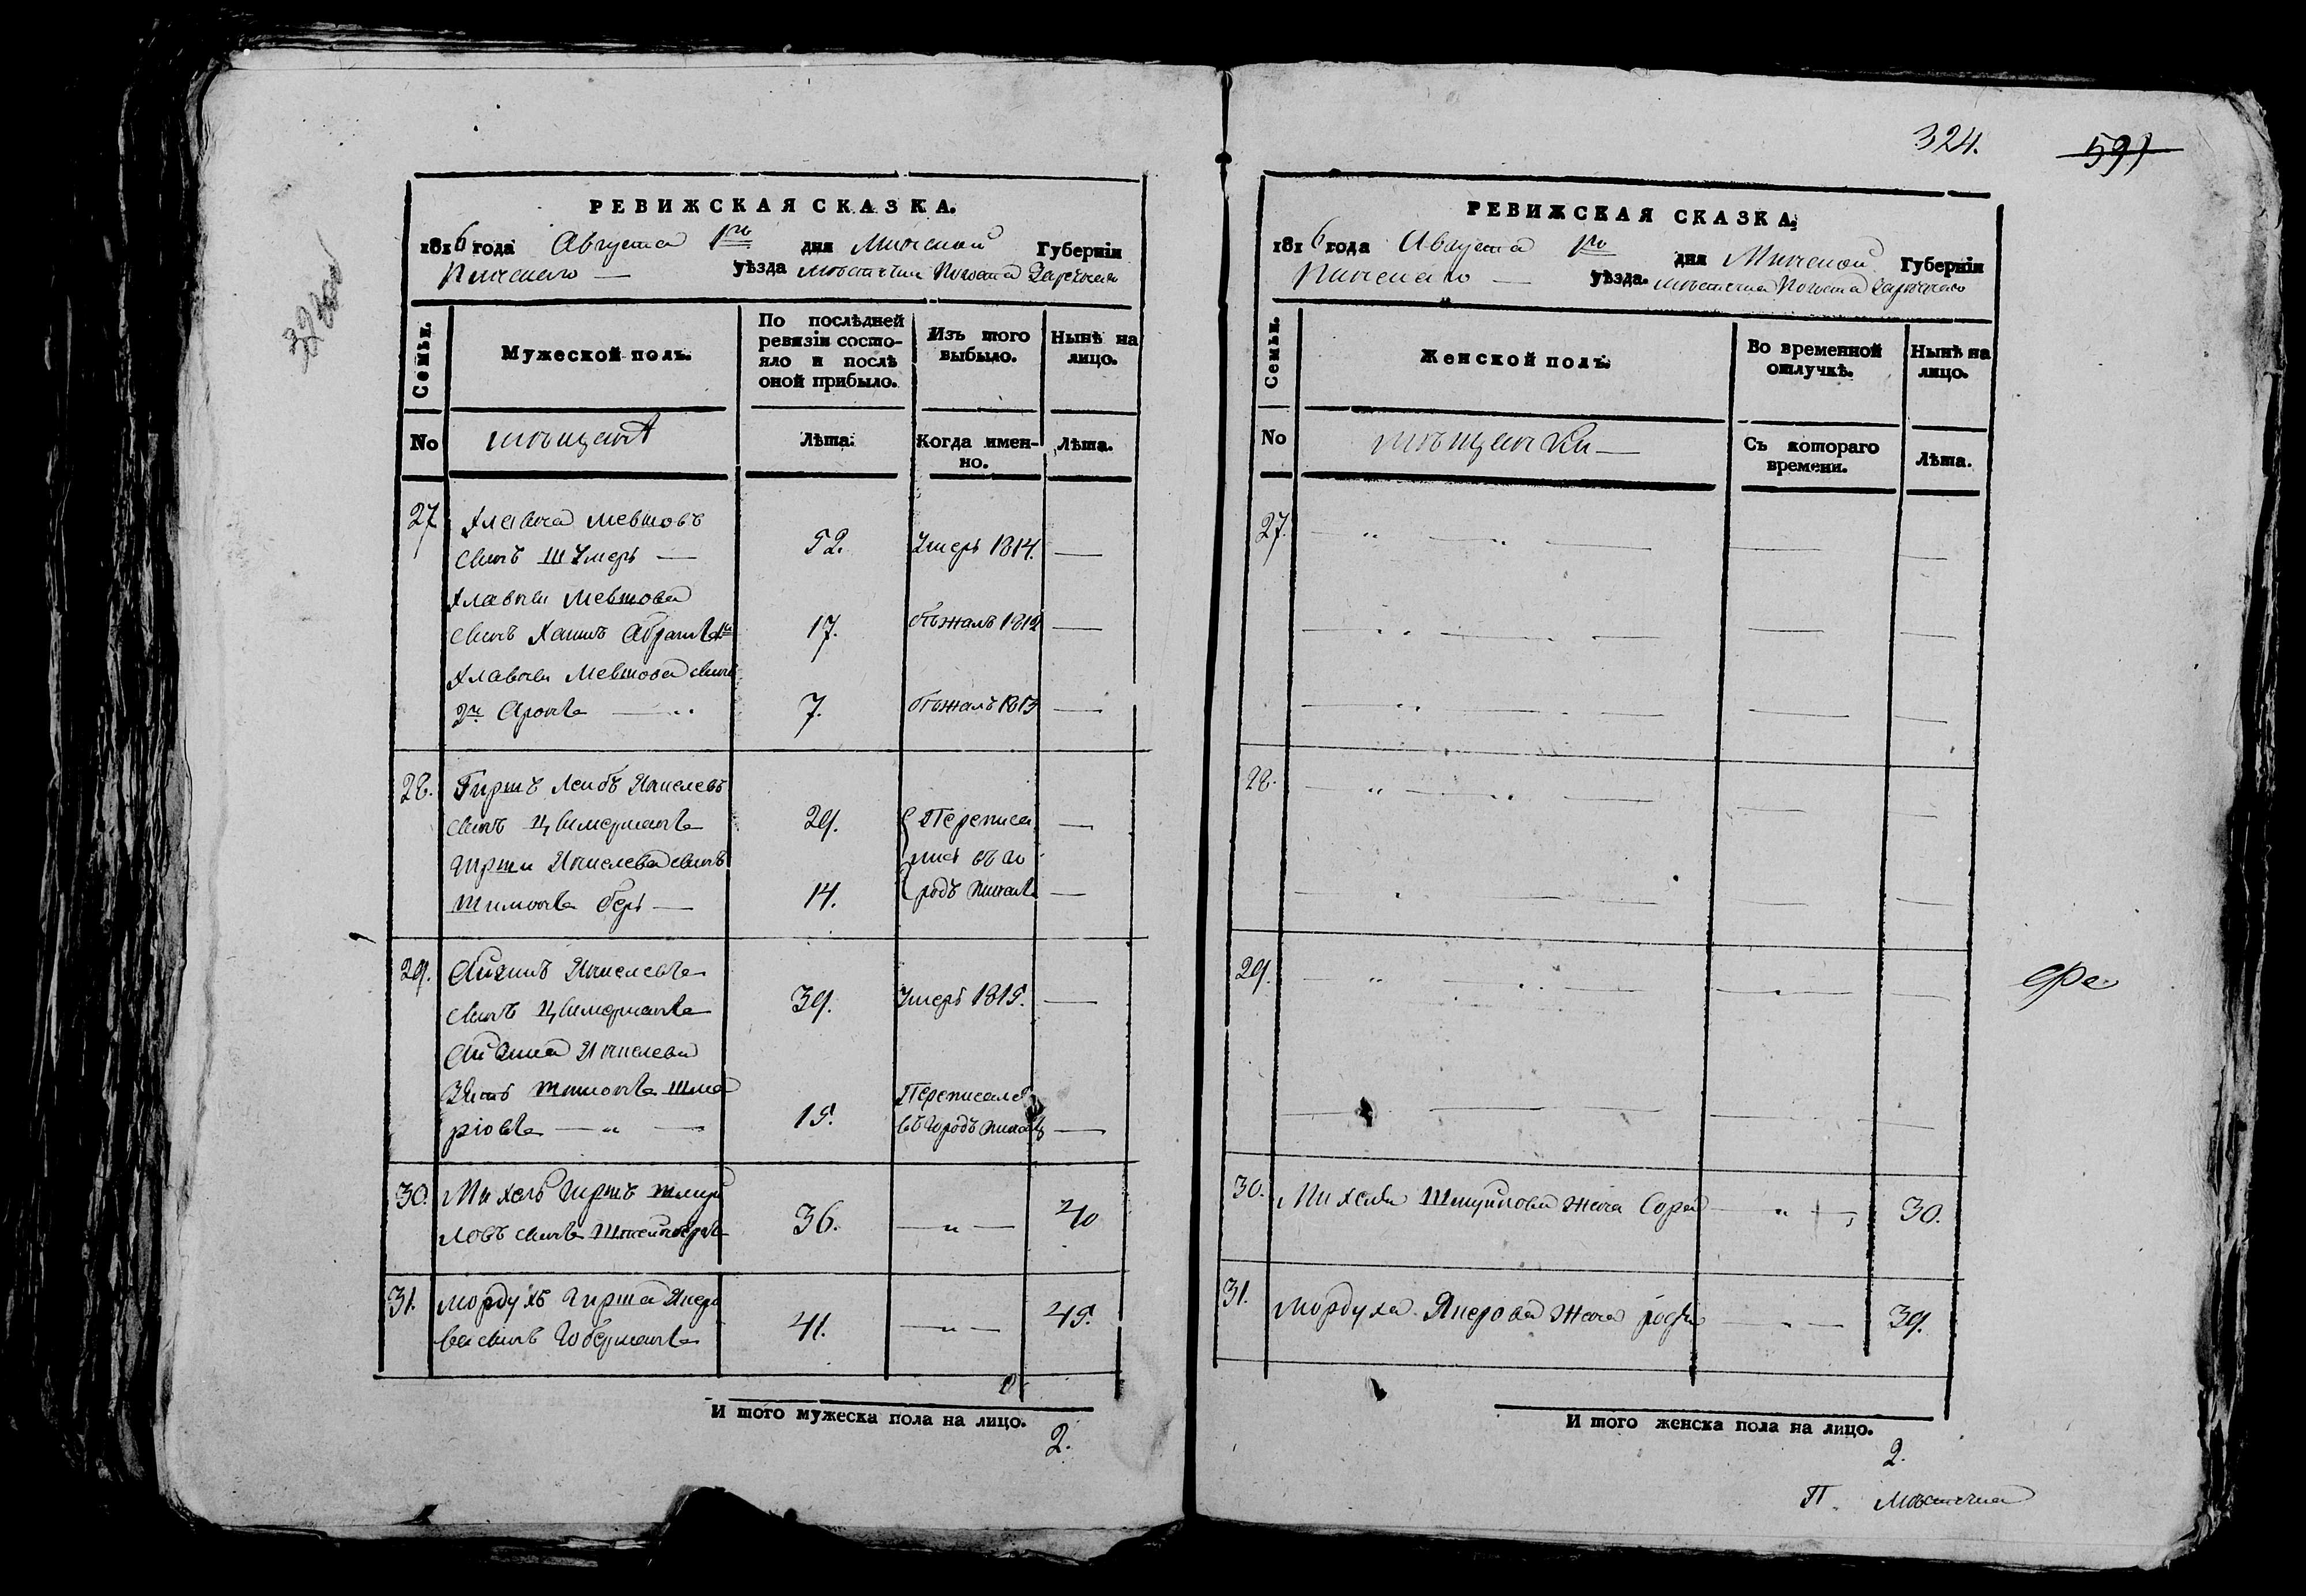 324.
597
РЕВИЖСКАЯ СКАЗКА.
1816 года Августа 1го дня Минской Губерніи
Пинскаго — уѣзда мѣстечка Погоста Зарѣчнаго
Семьи.
Мужеской полъ.
По послѣдней ревизіи состо-
яло и послѣ
оной прибыло.
Изъ того
выбыло.
Нынѣ на
лицо.
No
мѣщанѣ
Лѣта.
Когда имен-
но.
Лѣта.
27
Хлавна Мевшовъ
сынъ
52.
Умеръ 1814.
Хлавны Мевшова
сынъ Хаимъ Абрамъ
17.
бѣжалъ 1812
Хлавны Мевшова сынъ
2й Аронъ
7.
бѣжалъ 1813
28.
Гиршъ Лейбъ Ицкелевъ
сынъ Цымерманъ
29.
Переписа
лись въ го
родъ Пинскъ
Гирши Ицкелева сынъ
Шимонъ Беръ
14.
29.
Айзикъ Ицкелевъ
сынъ Цымерманъ
39.
Умеръ 1815.
Айзика Ицкелева
зять Шимонъ
15.
Переписался
въ городъ Пинскъ
30.
Михель Гиршъ Шмуй
ловъ сынъ Штейнбергъ
36.
40
31.
Мордухъ Гирша Янкеро
ва сынъ Гоберманъ
41.
45.
И того мужеска пола на лицо.
2.
РЕВИЖСКАЯ СКАЗКА.
1816 года Августа 1го дня Минской Губерніи
Пинскаго — уѣзда. мѣстечка Погоста Зарѣчнаго
Семьи.
Женской полъ.
Во временной
отлучкѣ.
Нынѣ на
лицо.
No
мѣщанки
Съ котораго
времени.
Лѣта.
27.
28.
29.
30.
Михеля Шмуйлова жена Сора
30.
31.
Мордуха жена
39.
И того женска пола на лицо.
2.
П. Мѣстечка